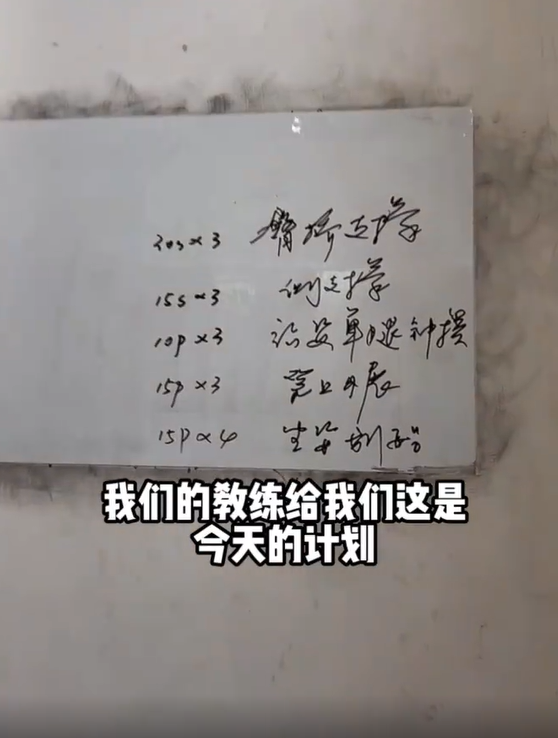 30s×3 臂桥支撑
15s×3 侧支撑
10P×3 站姿单腿钟摆
15P×3 髋上外展
15P×4 坐姿划船
我们的教练给我们这是
今天的计划